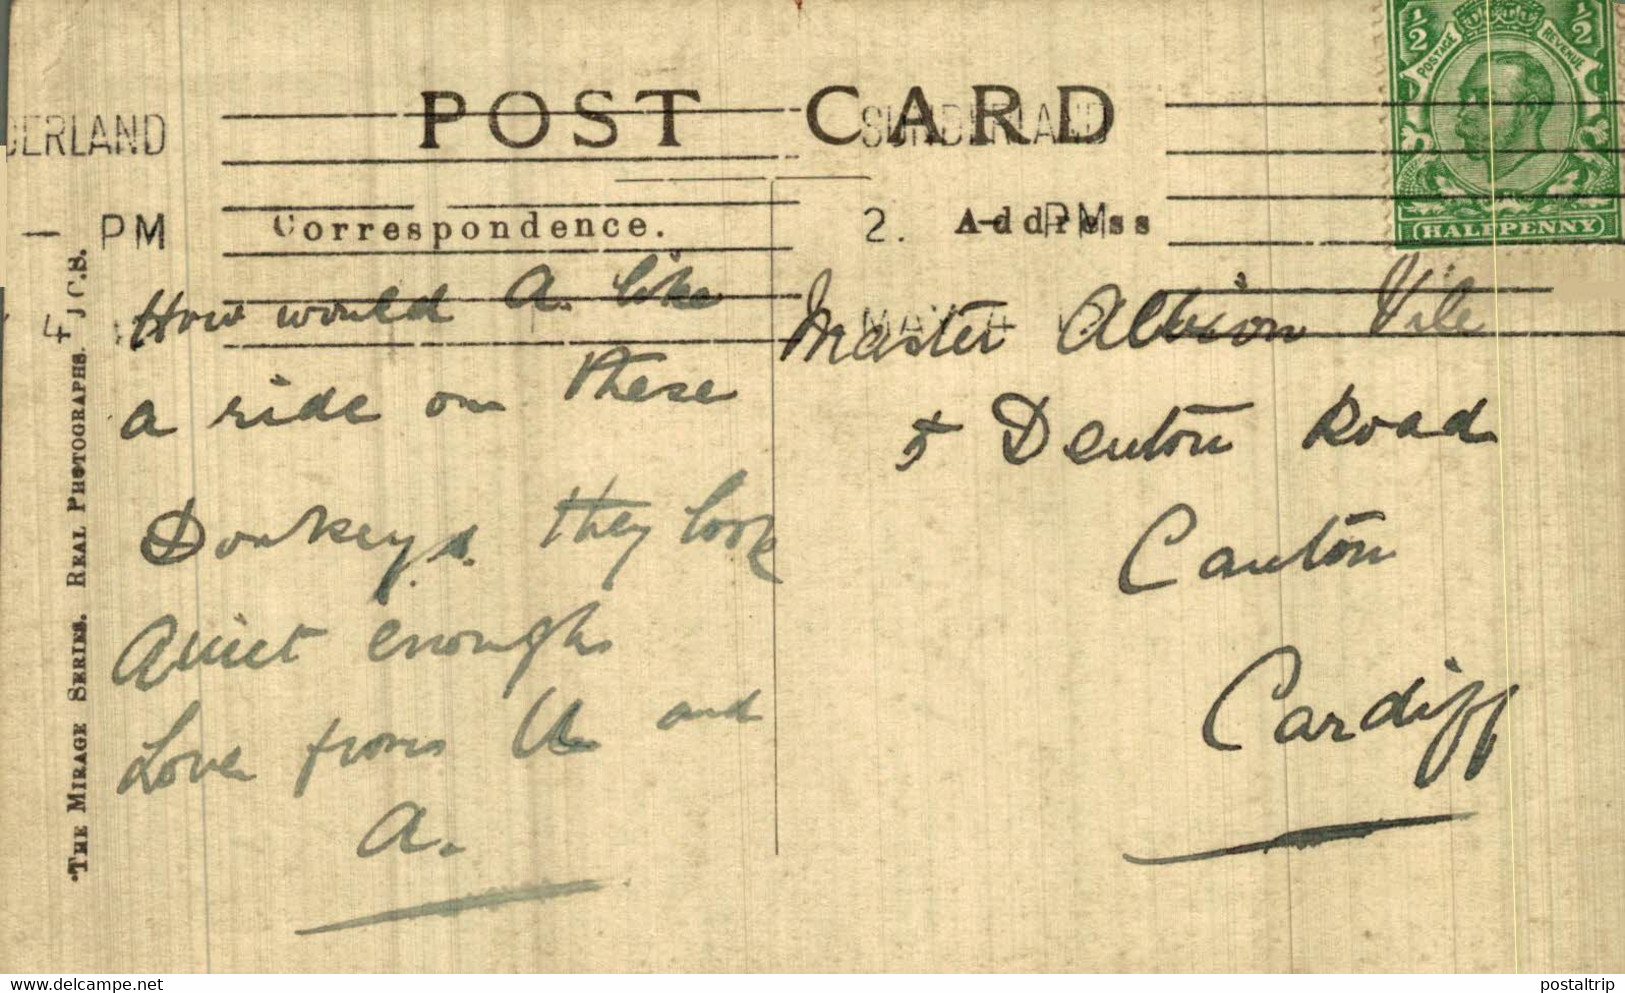 POST CARD
DERLAND
SUNDERLAND
PM
2. - PM
4
MAY 4
Correspondence.
Address
1/2 1/2
POSTAGE REVENUE
HALFPENNY
"THE MIRAGE SERIES. REAL PHOTOGRAPHS. J.C.S.
How would A. like
a ride on these
Donkeys. they look
Quiet enough
Love from U and
A.
Master Albion Vile
5 Denton Road
Canton
Cardiff
delcampe.net
postaltrip